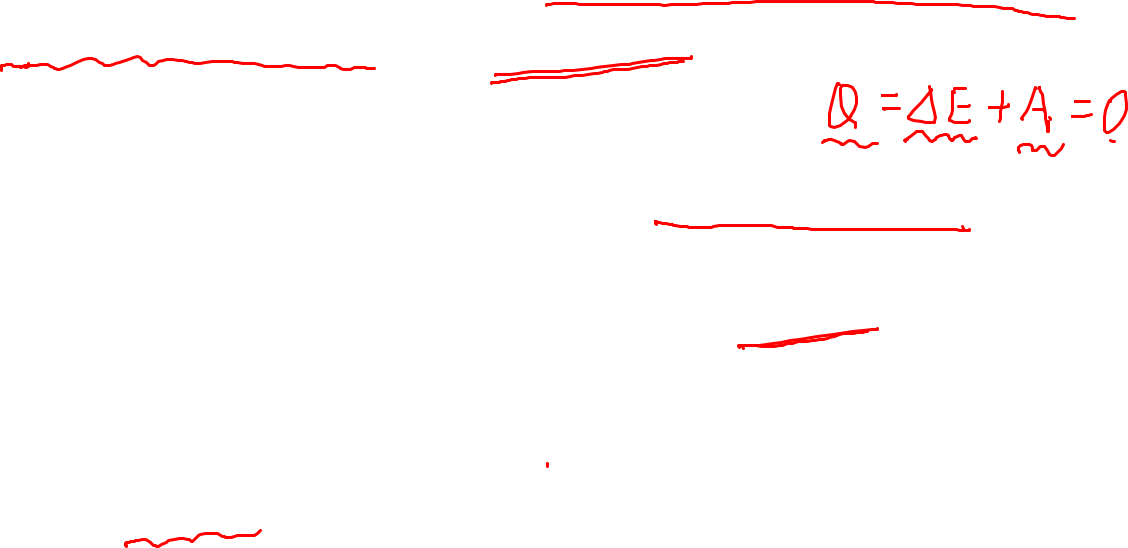 Q = ΔE + A = 0